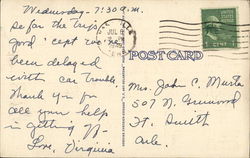 Wednesday - 7:30 A.M.
So far the trip's
good 'cept we've
been delayed
with car trouble
Thank you for
all your help
in getting
Love, Virginia
POST CARD
Mrs. John C.
507 N. Greenwood
Ft. Smith
Ark.